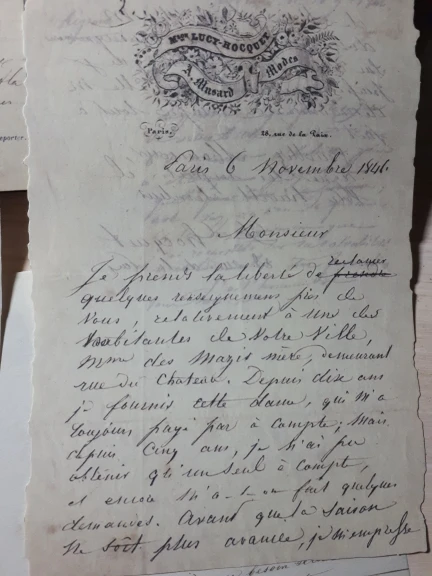 Mme LUCY-HOCQUET
A. Musard
Modes
Paris,
28, rue de la Paix.
Paris 6 Novembre 1846.
Monsieur
Je prends la liberté de réclamer prendre
quelques renseignemens près de
vous, relativement à une des
habitantes de votre ville,
Mme des Mazis mère, demeurant
rue du Chateau. Depuis dix ans
je fournis cette dame, qui m'a
toujours payé par à compte; mais
depuis cinq ans, je n'ai pu
obtenir qu'un seul à compte,
et encore m'a-t-on fait quelques
demandes. Avant que la saison
ne soit plus avancée, je m'empresse